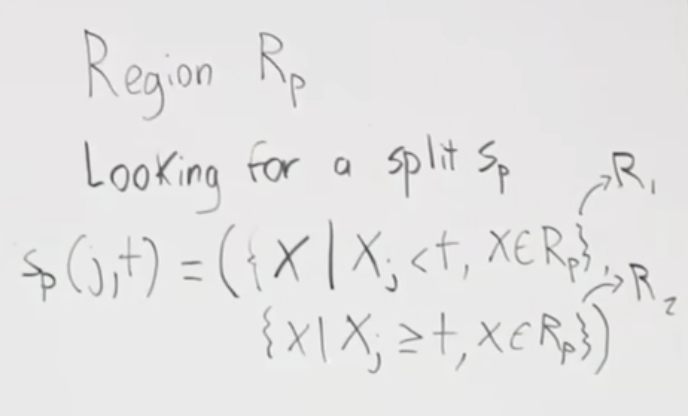 Region Rₚ
Looking for a split Sₚ
Sₚ(j,t) = ({X | Xⱼ < t, X ∈ Rₚ}, → R₁
{X | Xⱼ ≥ t, X ∈ Rₚ}) → R₂